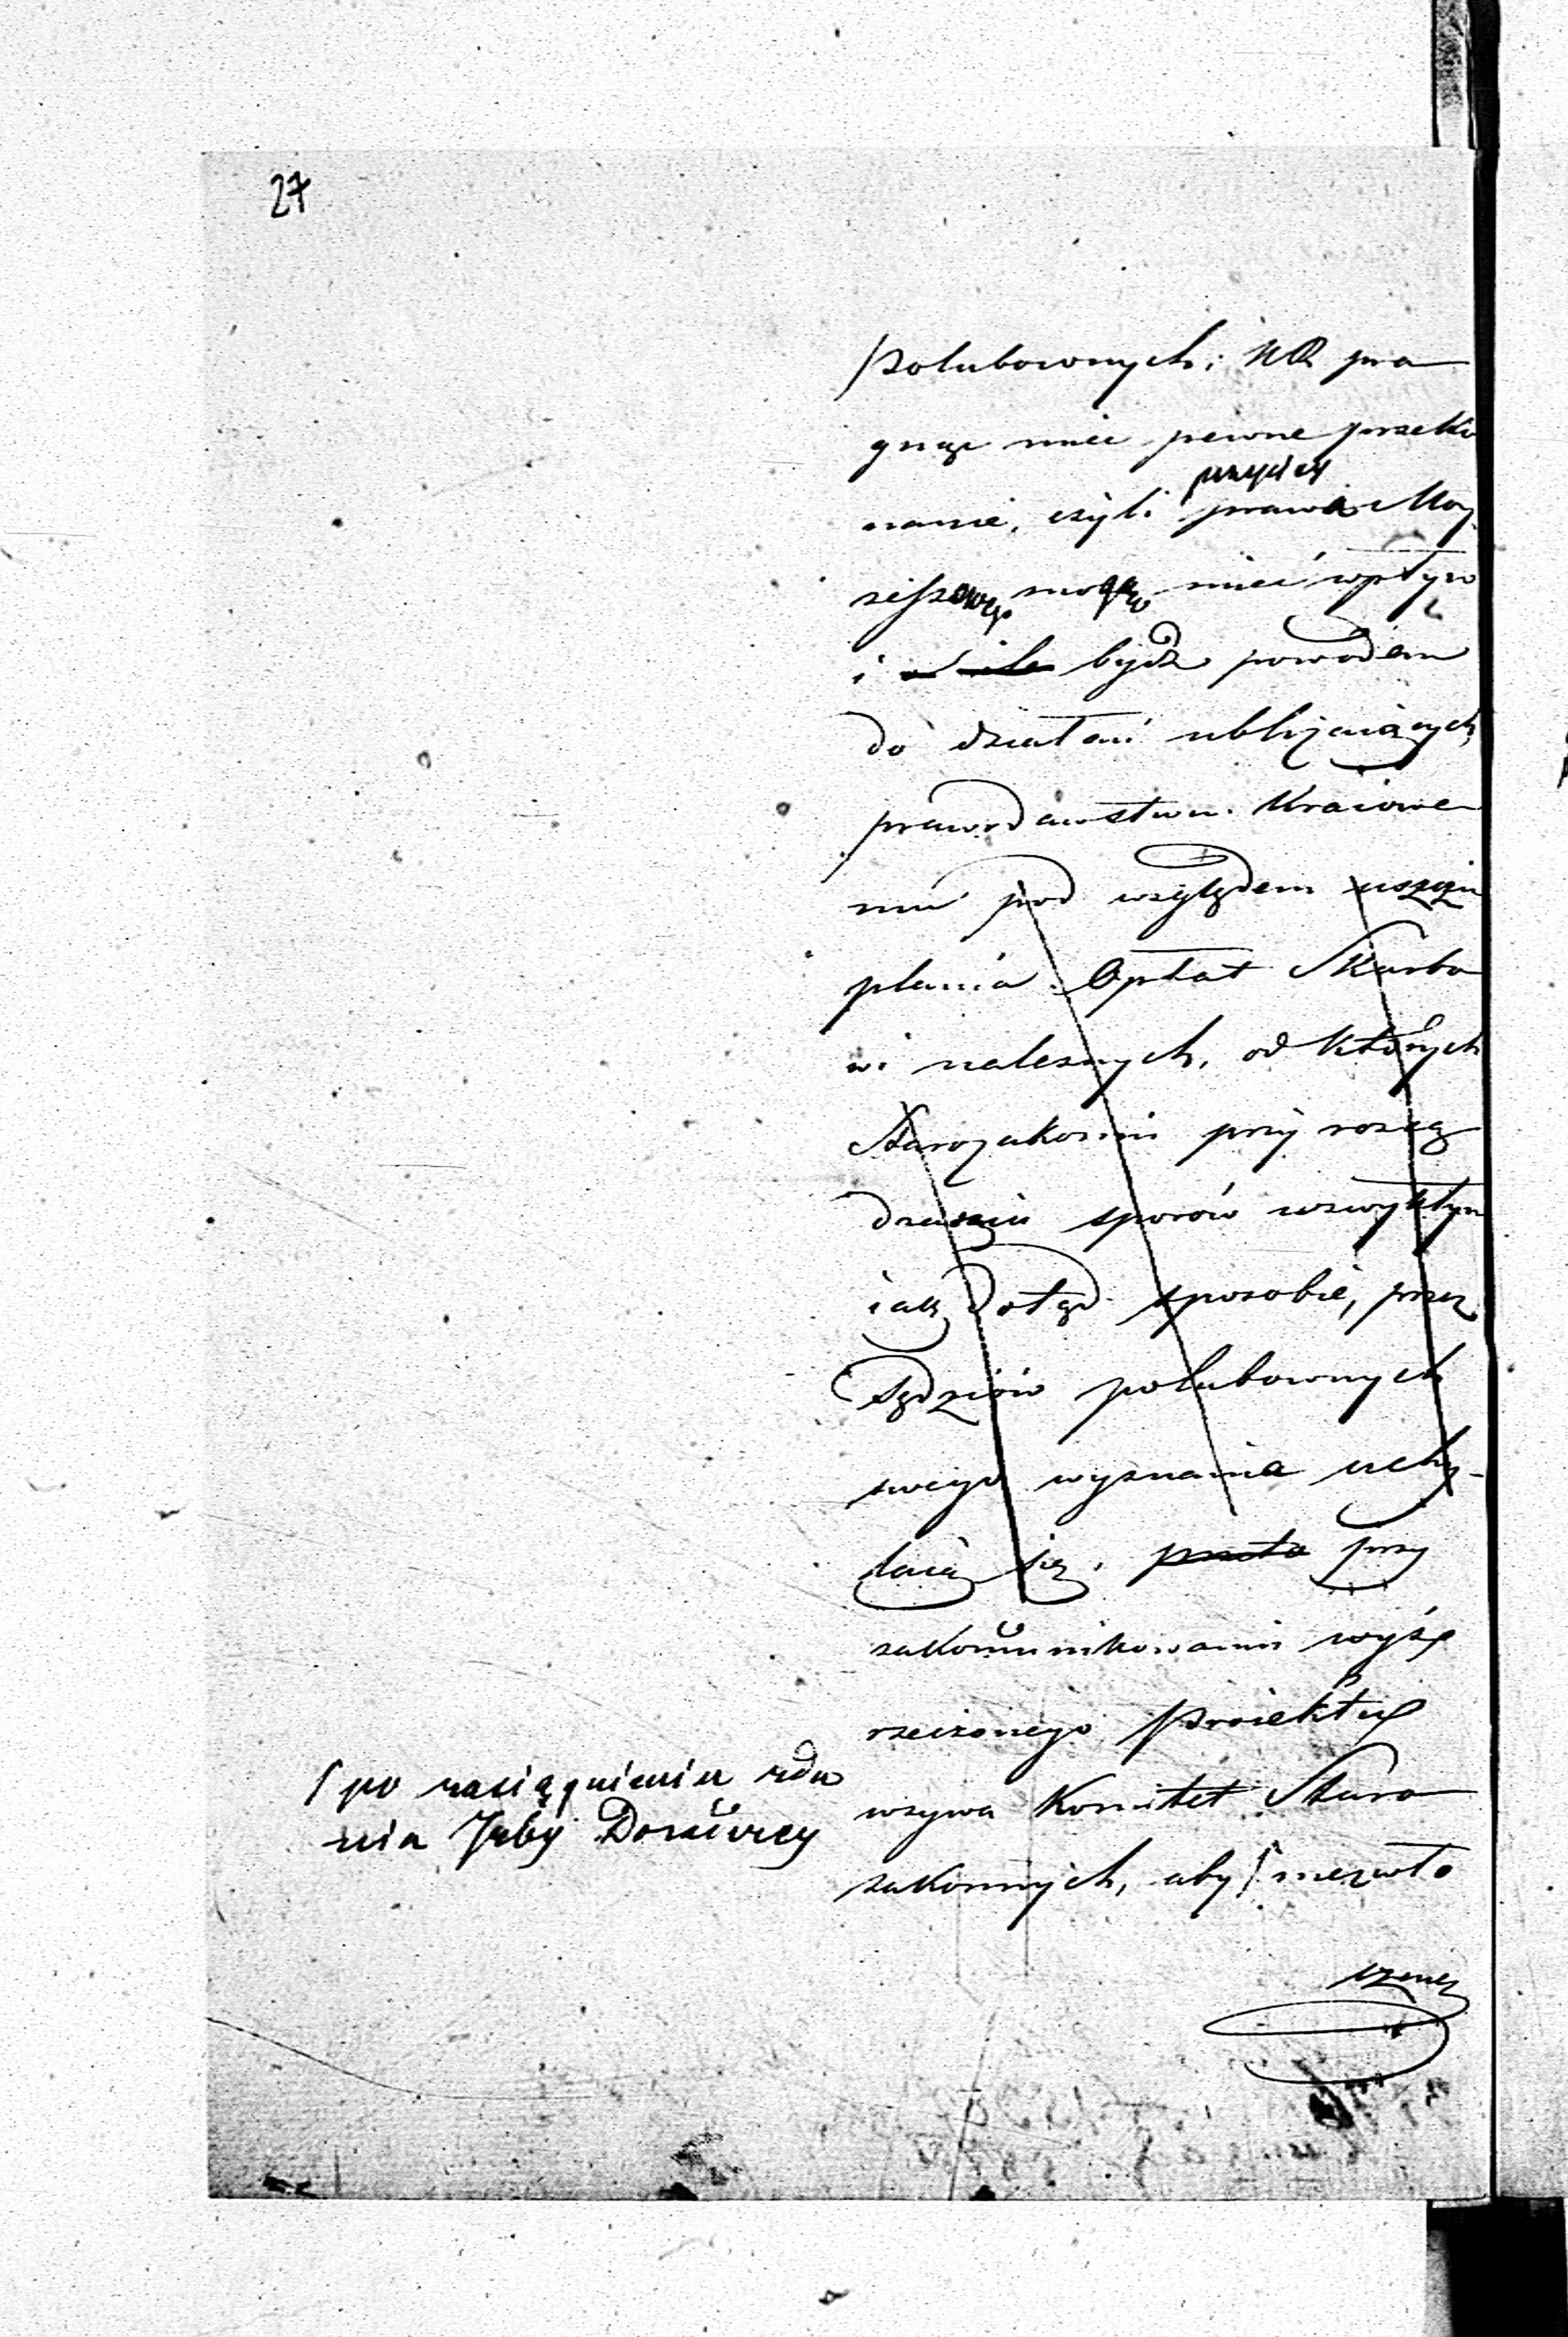 27
Polubownych; KR pra
gnąc mieć pewne przeko
nanie, czyli prawa Moy
przepisy
żeszowego mogą mieć wpływ
i bydź powodem
do działań ubliżaiących
prawodawstwu Kraiowe
mu pod względem uszczu
plania Opłat Skarbo
wi należnych, od których
Starozakonni przy rozsą
dzaniu sporów w zwykłym
iak dotąd sposobie, przez
Sędziów polubownych
swego wyznania uchy-
laią się, przeto przy
zakomunikowaniu wyżej
rzeczonego Proiektu
wzywa Komitet Staro
zakonnych, aby niezwło
/po zasiągnieniu zda
nia Izby Doradczey
czney